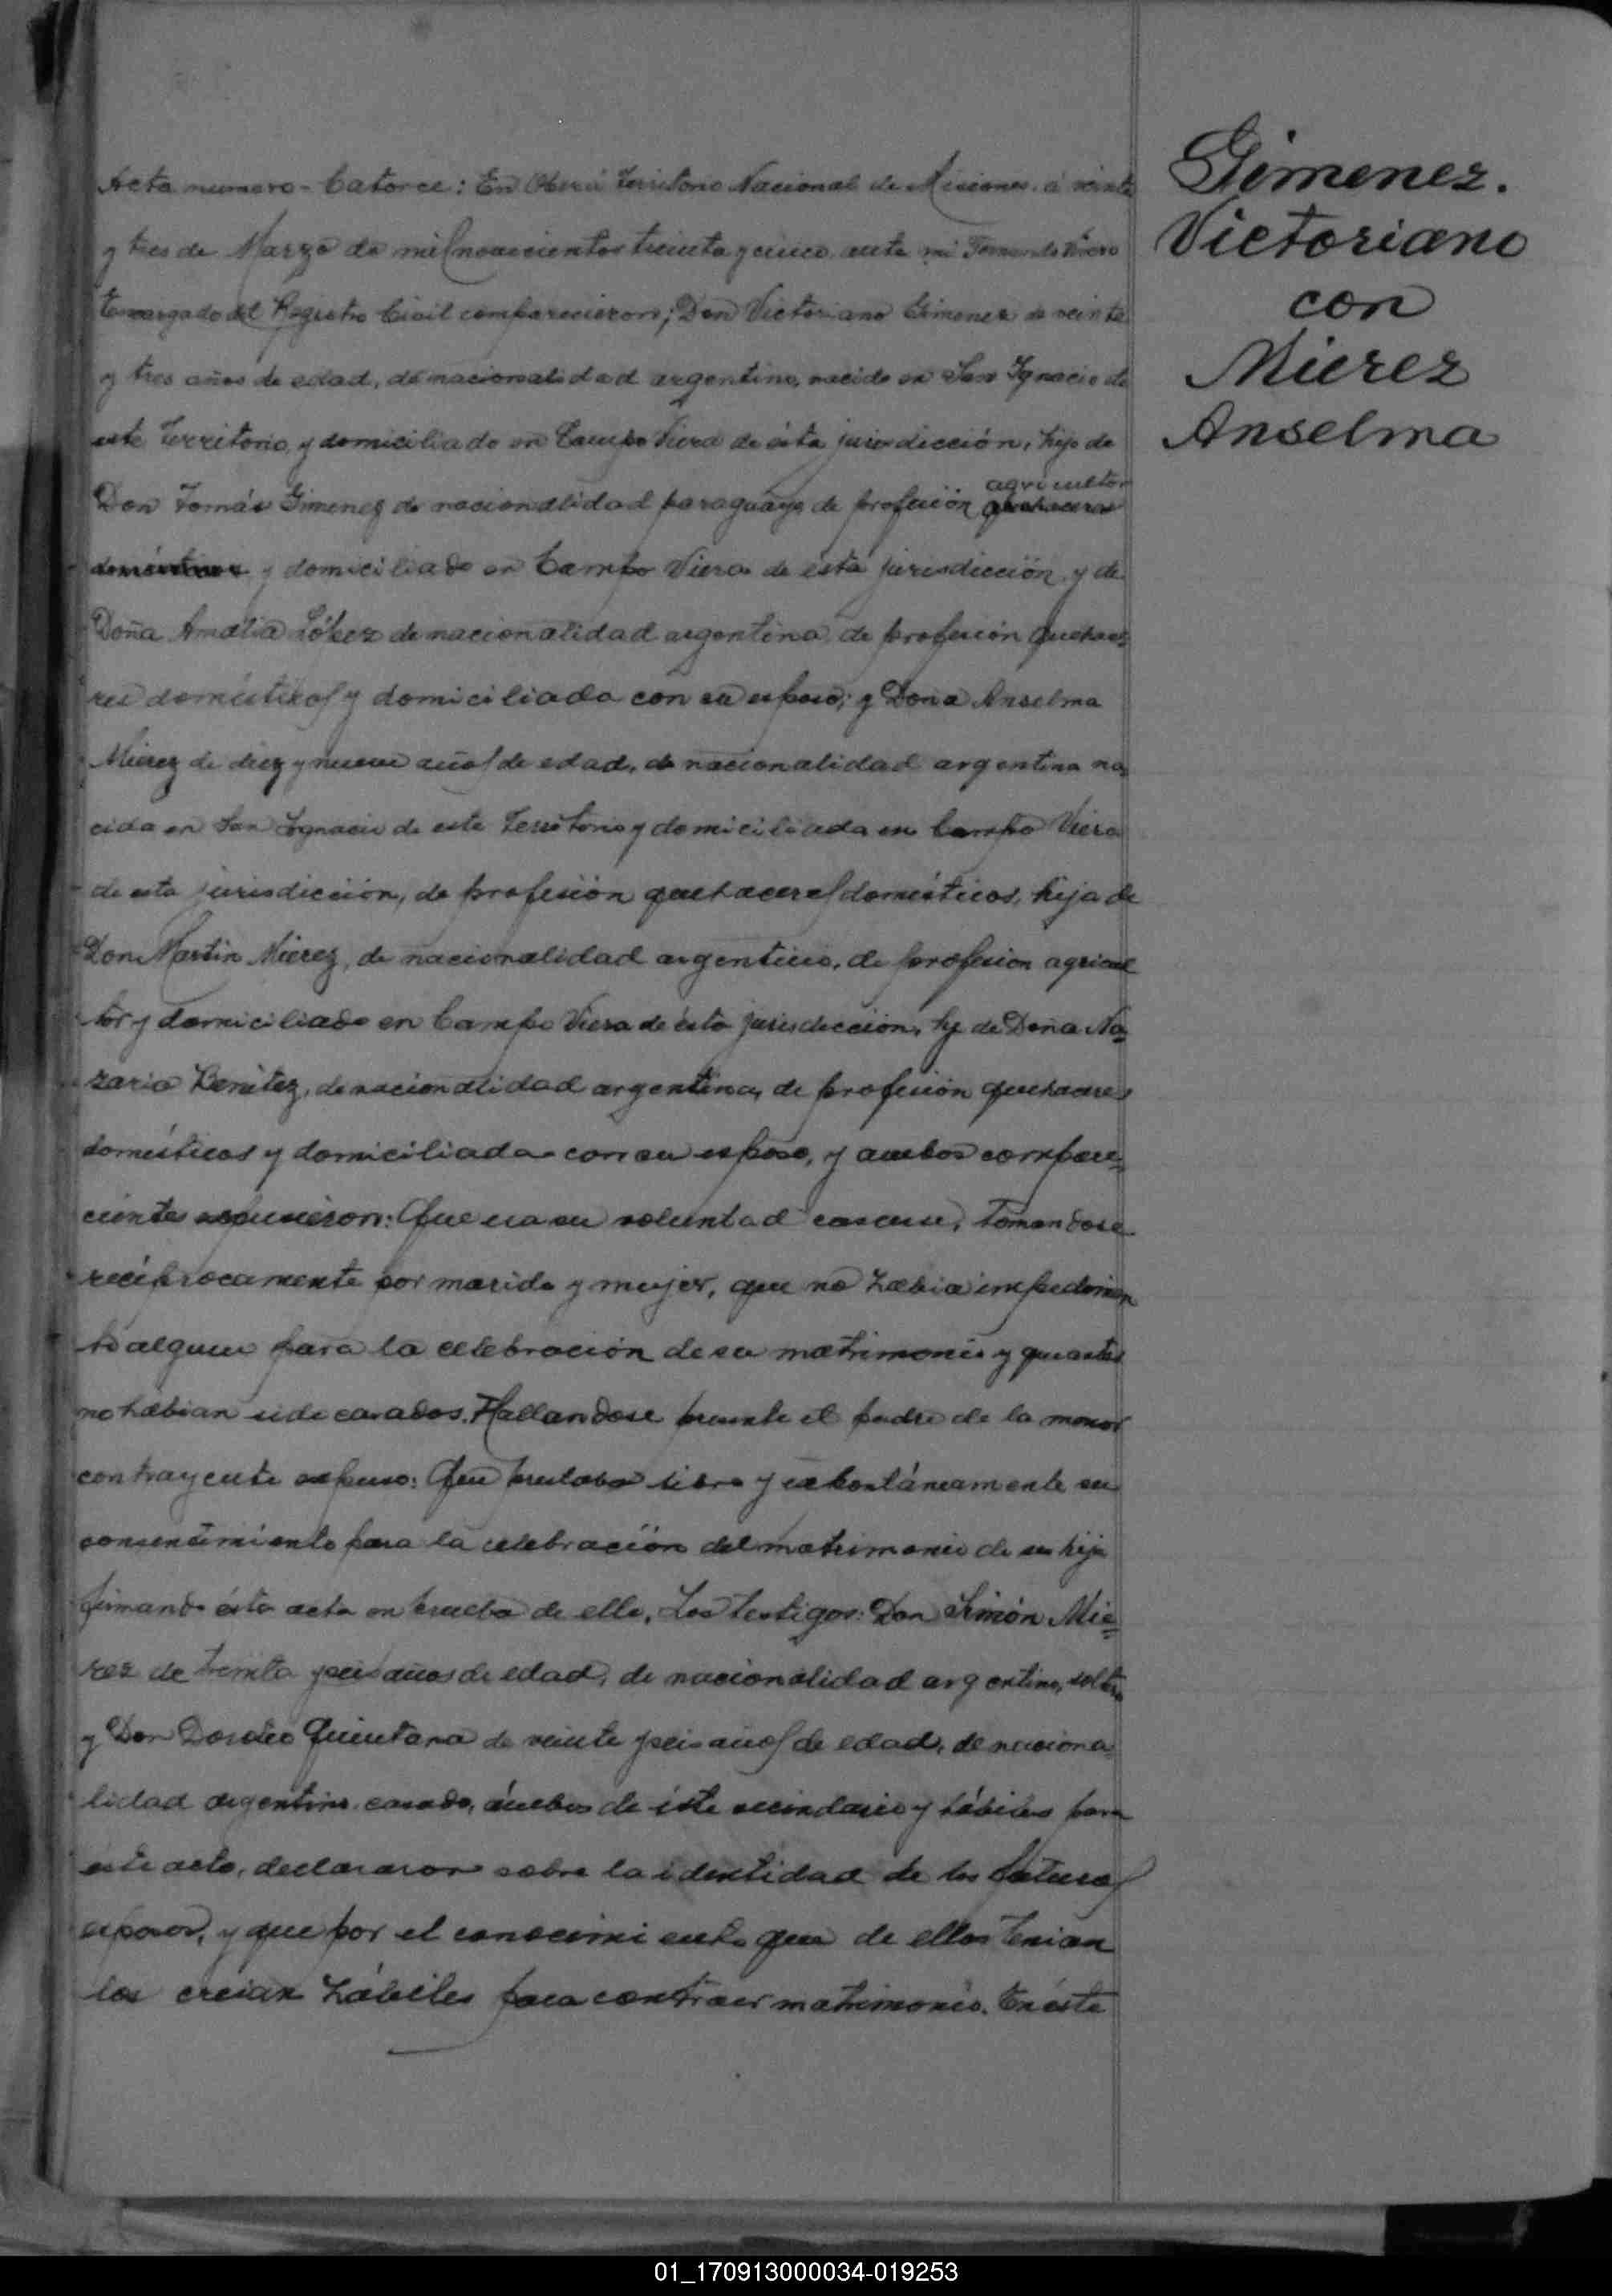 Gimenez.
Victoriano
con
Mierez
Anselma
Acta numero - Catorce: En Oberá Territorio Nacional de Misiones, á veinte
y tres de Marzo de mil novecientos treinta y cinco, ante mi Fernando
Encargado del Registro Civil comparecieron; Don Victoriano Gimenez de veinte
y tres años de edad, de nacionalidad argentino, nacido en San Ignacio de
este Territorio y domiciliado en Campo Viera de ésta jurisdicción, hijo de
agricultor
Don Tomás Gimenez de nacionalidad paraguaya de profesión quehaceres
domésticos y domiciliado en Campo Viera de ésta jurisdicción y de
Doña Amalia López de nacionalidad argentina, de profesión quehace=
res domésticos y domiciliada con su esposo; y Doña Anselma
Mierez de diez y nueve años de edad, de nacionalidad argentina na=
cida en San Ignacio de este Territorio y domiciliada en Campo Viera
de esta jurisdicción, de profesión quehaceres domésticos, hija de
Don Martin Mierez, de nacionalidad argentino, de profesion agricul
tor y domiciliado en Campo Viera de ésta jurisdicción, y de Doña Na=
zaria Benitez, de nacionalidad argentina, de profesión quehaceres
domésticos y domiciliada con su esposo, y ambos compare=
cientes expusieron: Que era su voluntad casarse, tomandose
recíprocamente por marido y mujer, que no habia impedimen
to alguno para la celebración de su matrimonio y que antes
no habian sido casados. Hallandose presente el padre de la menor
contrayente expuso: Que prestaba libre y expontáneamente su
consentimiento para la celebración del matrimonio de su hija
firmando ésta acta en prueba de ello. Los testigos: Don Simón Mie=
rez de treinta y seis años de edad, de nacionalidad argentino, soltero
y Don Doroteo Quintana de veinte y seis años de edad, de naciona=
lidad argentino, casado, ámbos de éste vecindario y hábiles para
este acto, declararon sobre la identidad de los futuros
esposos, y que por el conocimiento que de ellos tenian
los creian hábiles para contraer matrimonio. En éste
01_170913000034-019253